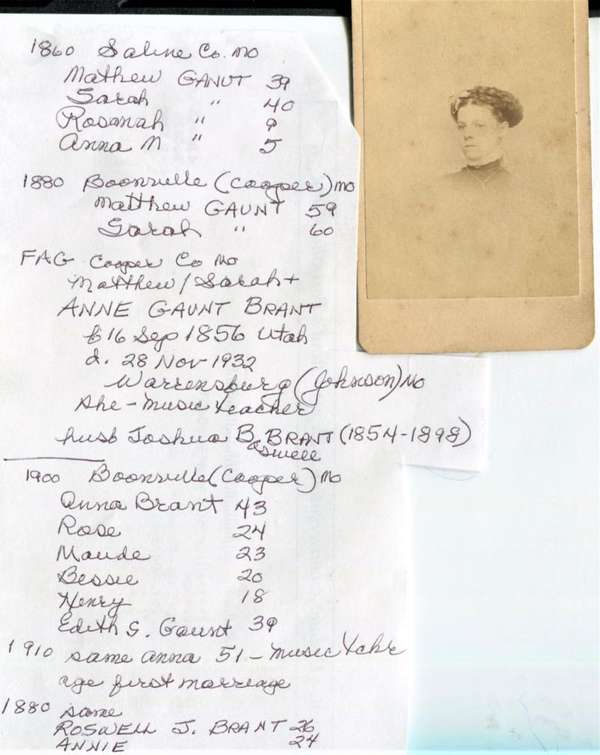 1860 Saline Co. MO
Mathew GANUT 39
Sarah " 40
Rosanah " 9
Anna M " 5
1880 Boonville (Cooper) MO
Matthew GAUNT 59
Sarah " 60
FAG Cooper Co Mo
Matthew/Sarah +
ANNE GAUNT BRANT
b 16 Sep 1856 Utah
d. 28 Nov 1932
Warrensburg (Johnson) MO
she - music teacher
husb Joshua B. BRANT (1854-1898)
oswell
1900 Boonville (Cooper) Mo
Anna Brant 43
Rose 24
Maude 23
Bessie 20
Henry 18
Edith G. Gaunt 39
1910 same Anna 51 - music tchr
age first marriage
1880 same
ROSWELL J. BRANT 26
ANNIE 24